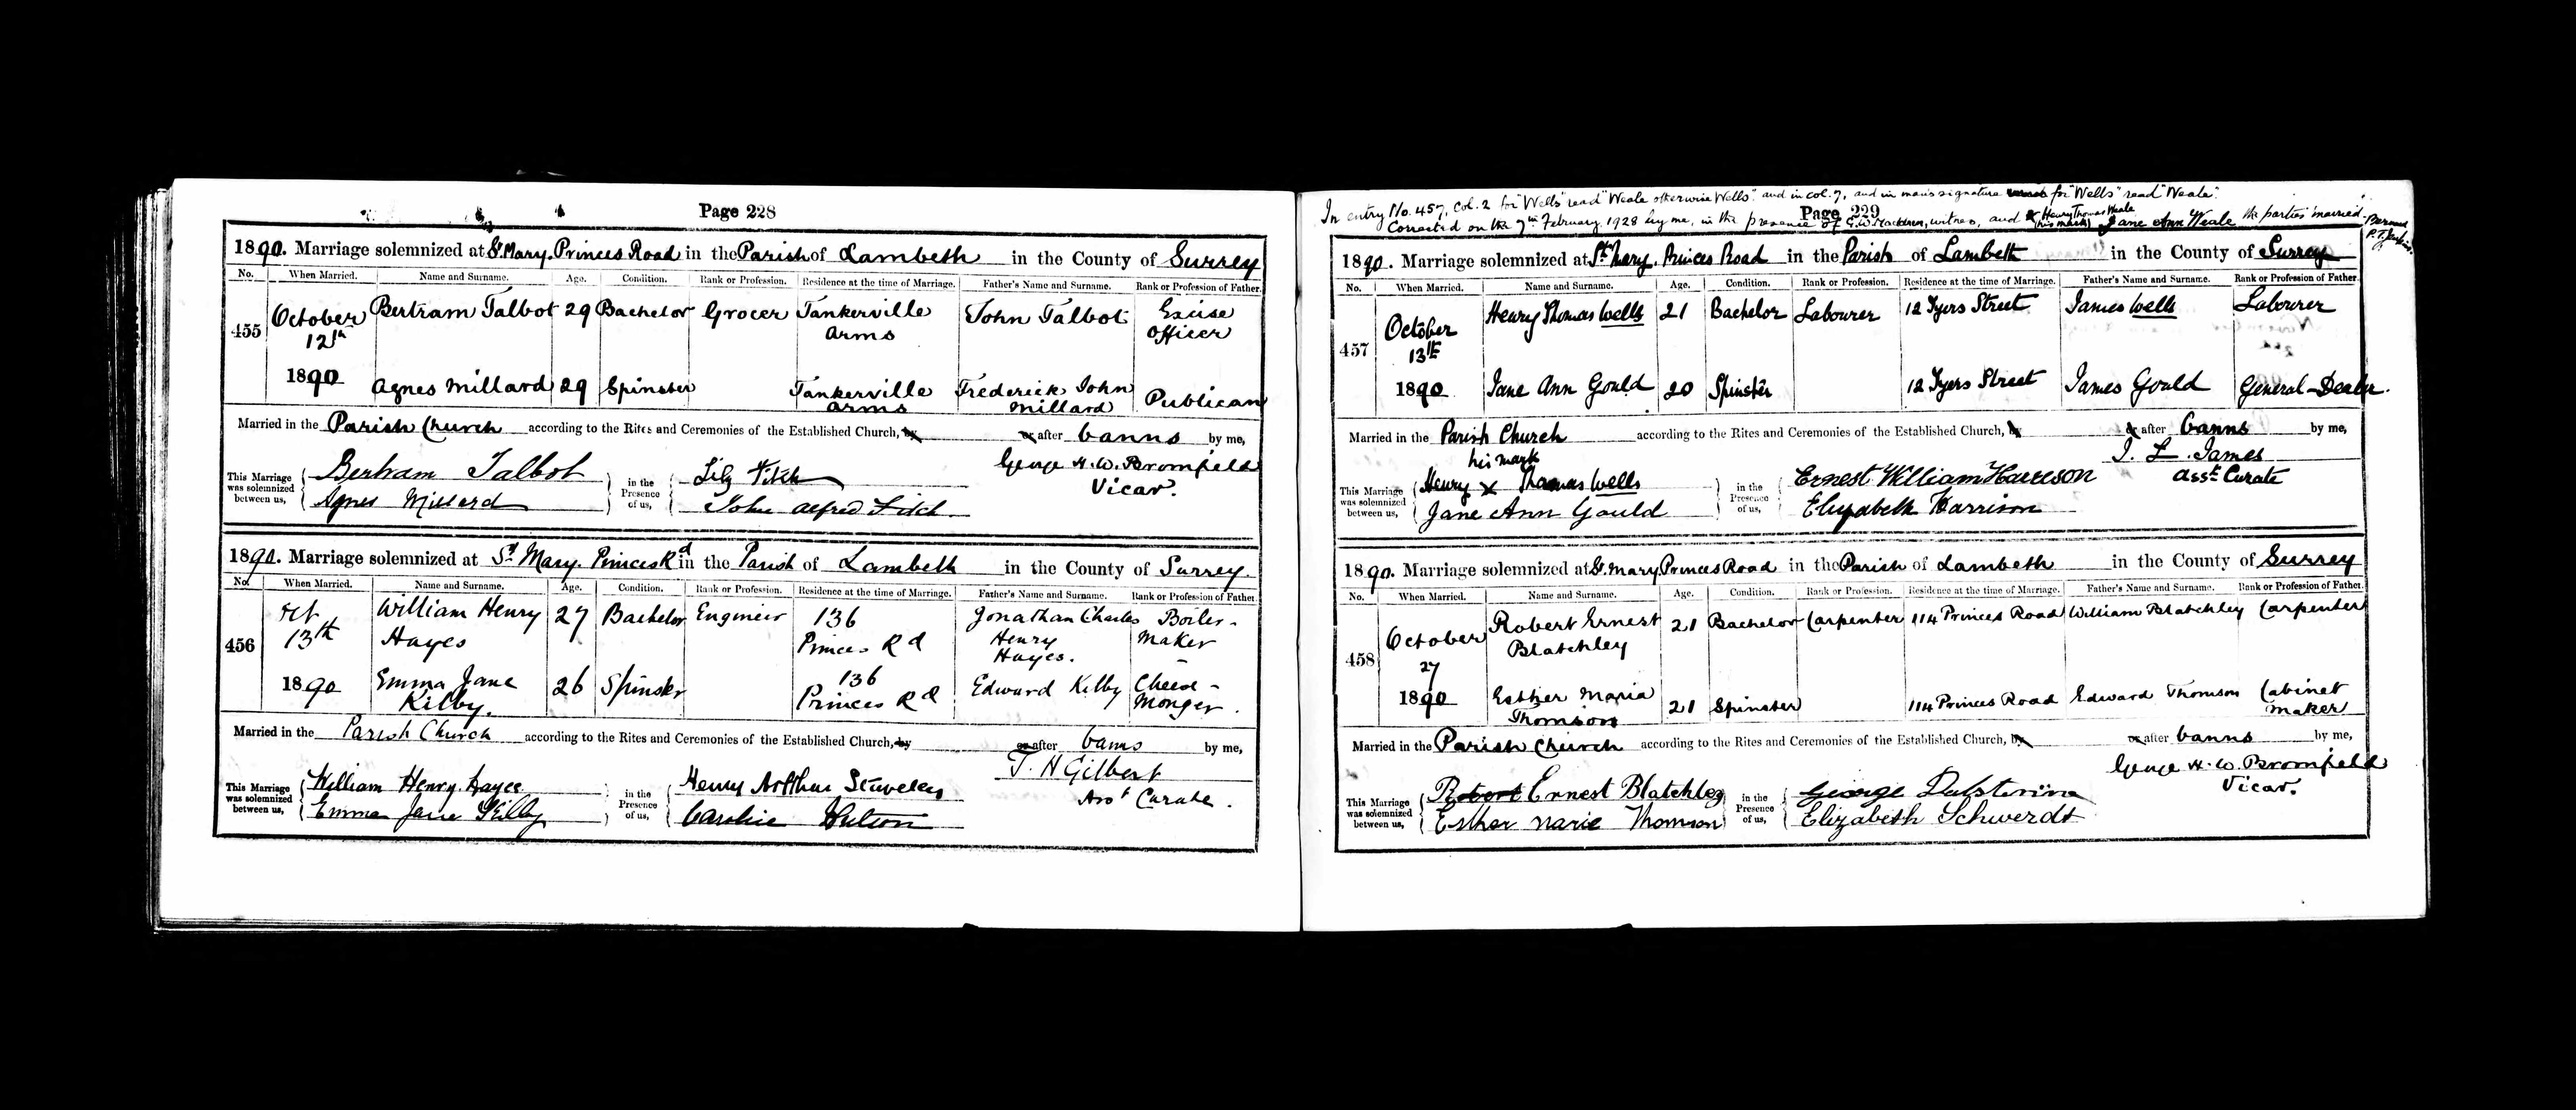 Page 228
1890. Marriage solemnized at St. Mary. Princes Road in the Parish of Lambeth in the County of Surrey
No. When Married. Name and Surname. Age. Condition. Rank or Profession. Residence at the time of Marriage. Father's Name and Surname. Rank or Profession of Father.
455 October 12th 1890 Bertram Talbot 29 Bachelor Grocer Tankerville Arms John Talbot Excise Officer
Agnes Millard 29 Spinster Tankerville Arms Frederick John Millard Publican
Married in the Parish Church according to the Rites and Ceremonies of the Established Church, by or after banns by me,
George H. W. Bromfield
Vicar.
This Marriage was solemnized between us, Bertram Talbot
Agnes Millard
in the Presence of us, Lily Fitch
John Alfred Fitch
1890. Marriage solemnized at St. Mary. Princes Rd in the Parish of Lambeth in the County of Surrey.
No. When Married. Name and Surname. Age. Condition. Rank or Profession. Residence at the time of Marriage. Father's Name and Surname. Rank or Profession of Father.
456 Oct 13th 1890 William Henry Hayes 27 Bachelor Engineer 136 Princes Rd Jonathan Charles Henry Hayes. Boiler-Maker
Emma Jane Kilby. 26 Spinster 136 Princes Rd Edward Kilby Cheese-Monger.
Married in the Parish Church according to the Rites and Ceremonies of the Established Church, by or after banns by me,
T. H Gilbert
Asst Curate.
This Marriage was solemnized between us, William Henry Hayes
Emma Jane Kilby
in the Presence of us, Henry Arthur
Caroline
In entry No. 457, Col. 2 for "Wells" read "Weale otherwise Wells" and in col. 7, and in man's signature for "Wells" read "Weale".
Page 229
Corrected on the 7th February 1928 by me, in the presence of G.W. witness, and X Henry Thomas Weale (his mark) Jane Ann Weale the parties married.
1890. Marriage solemnized at St. Mary. Princes Road in the Parish of Lambeth in the County of Surrey
No. When Married. Name and Surname. Age. Condition. Rank or Profession. Residence at the time of Marriage. Father's Name and Surname. Rank or Profession of Father.
457 October 13th 1890 Henry Thomas Wells 21 Bachelor Labourer 12 Tyers Street James Wells Labourer
Jane Ann Gould 20 Spinster 12 Tyers Street James Gould General Dealer.
Married in the Parish Church according to the Rites and Ceremonies of the Established Church, by or after banns by me,
J. L. James
Asst. Curate
his mark
This Marriage was solemnized between us, Henry X Thomas Wells
Jane Ann Gould
in the Presence of us, Ernest William Harrison
Elizabeth Harrison
1890. Marriage solemnized at St. Mary. Princes Road in the Parish of Lambeth in the County of Surrey
No. When Married. Name and Surname. Age. Condition. Rank or Profession. Residence at the time of Marriage. Father's Name and Surname. Rank or Profession of Father.
458 October 27 1890 Robert Ernest Blatchley 21 Bachelor Carpenter 114 Princes Road William Blatchley Carpenter
Esther Maria Thomson 21 Spinster 114 Princes Road Edward Thomson Cabinet Maker
Married in the Parish Church according to the Rites and Ceremonies of the Established Church, by or after banns by me,
George H. W. Bromfield
Vicar.
This Marriage was solemnized between us, Robert Ernest Blatchley
Esther Marie Thomson
in the Presence of us, George
Elizabeth Schwerdt